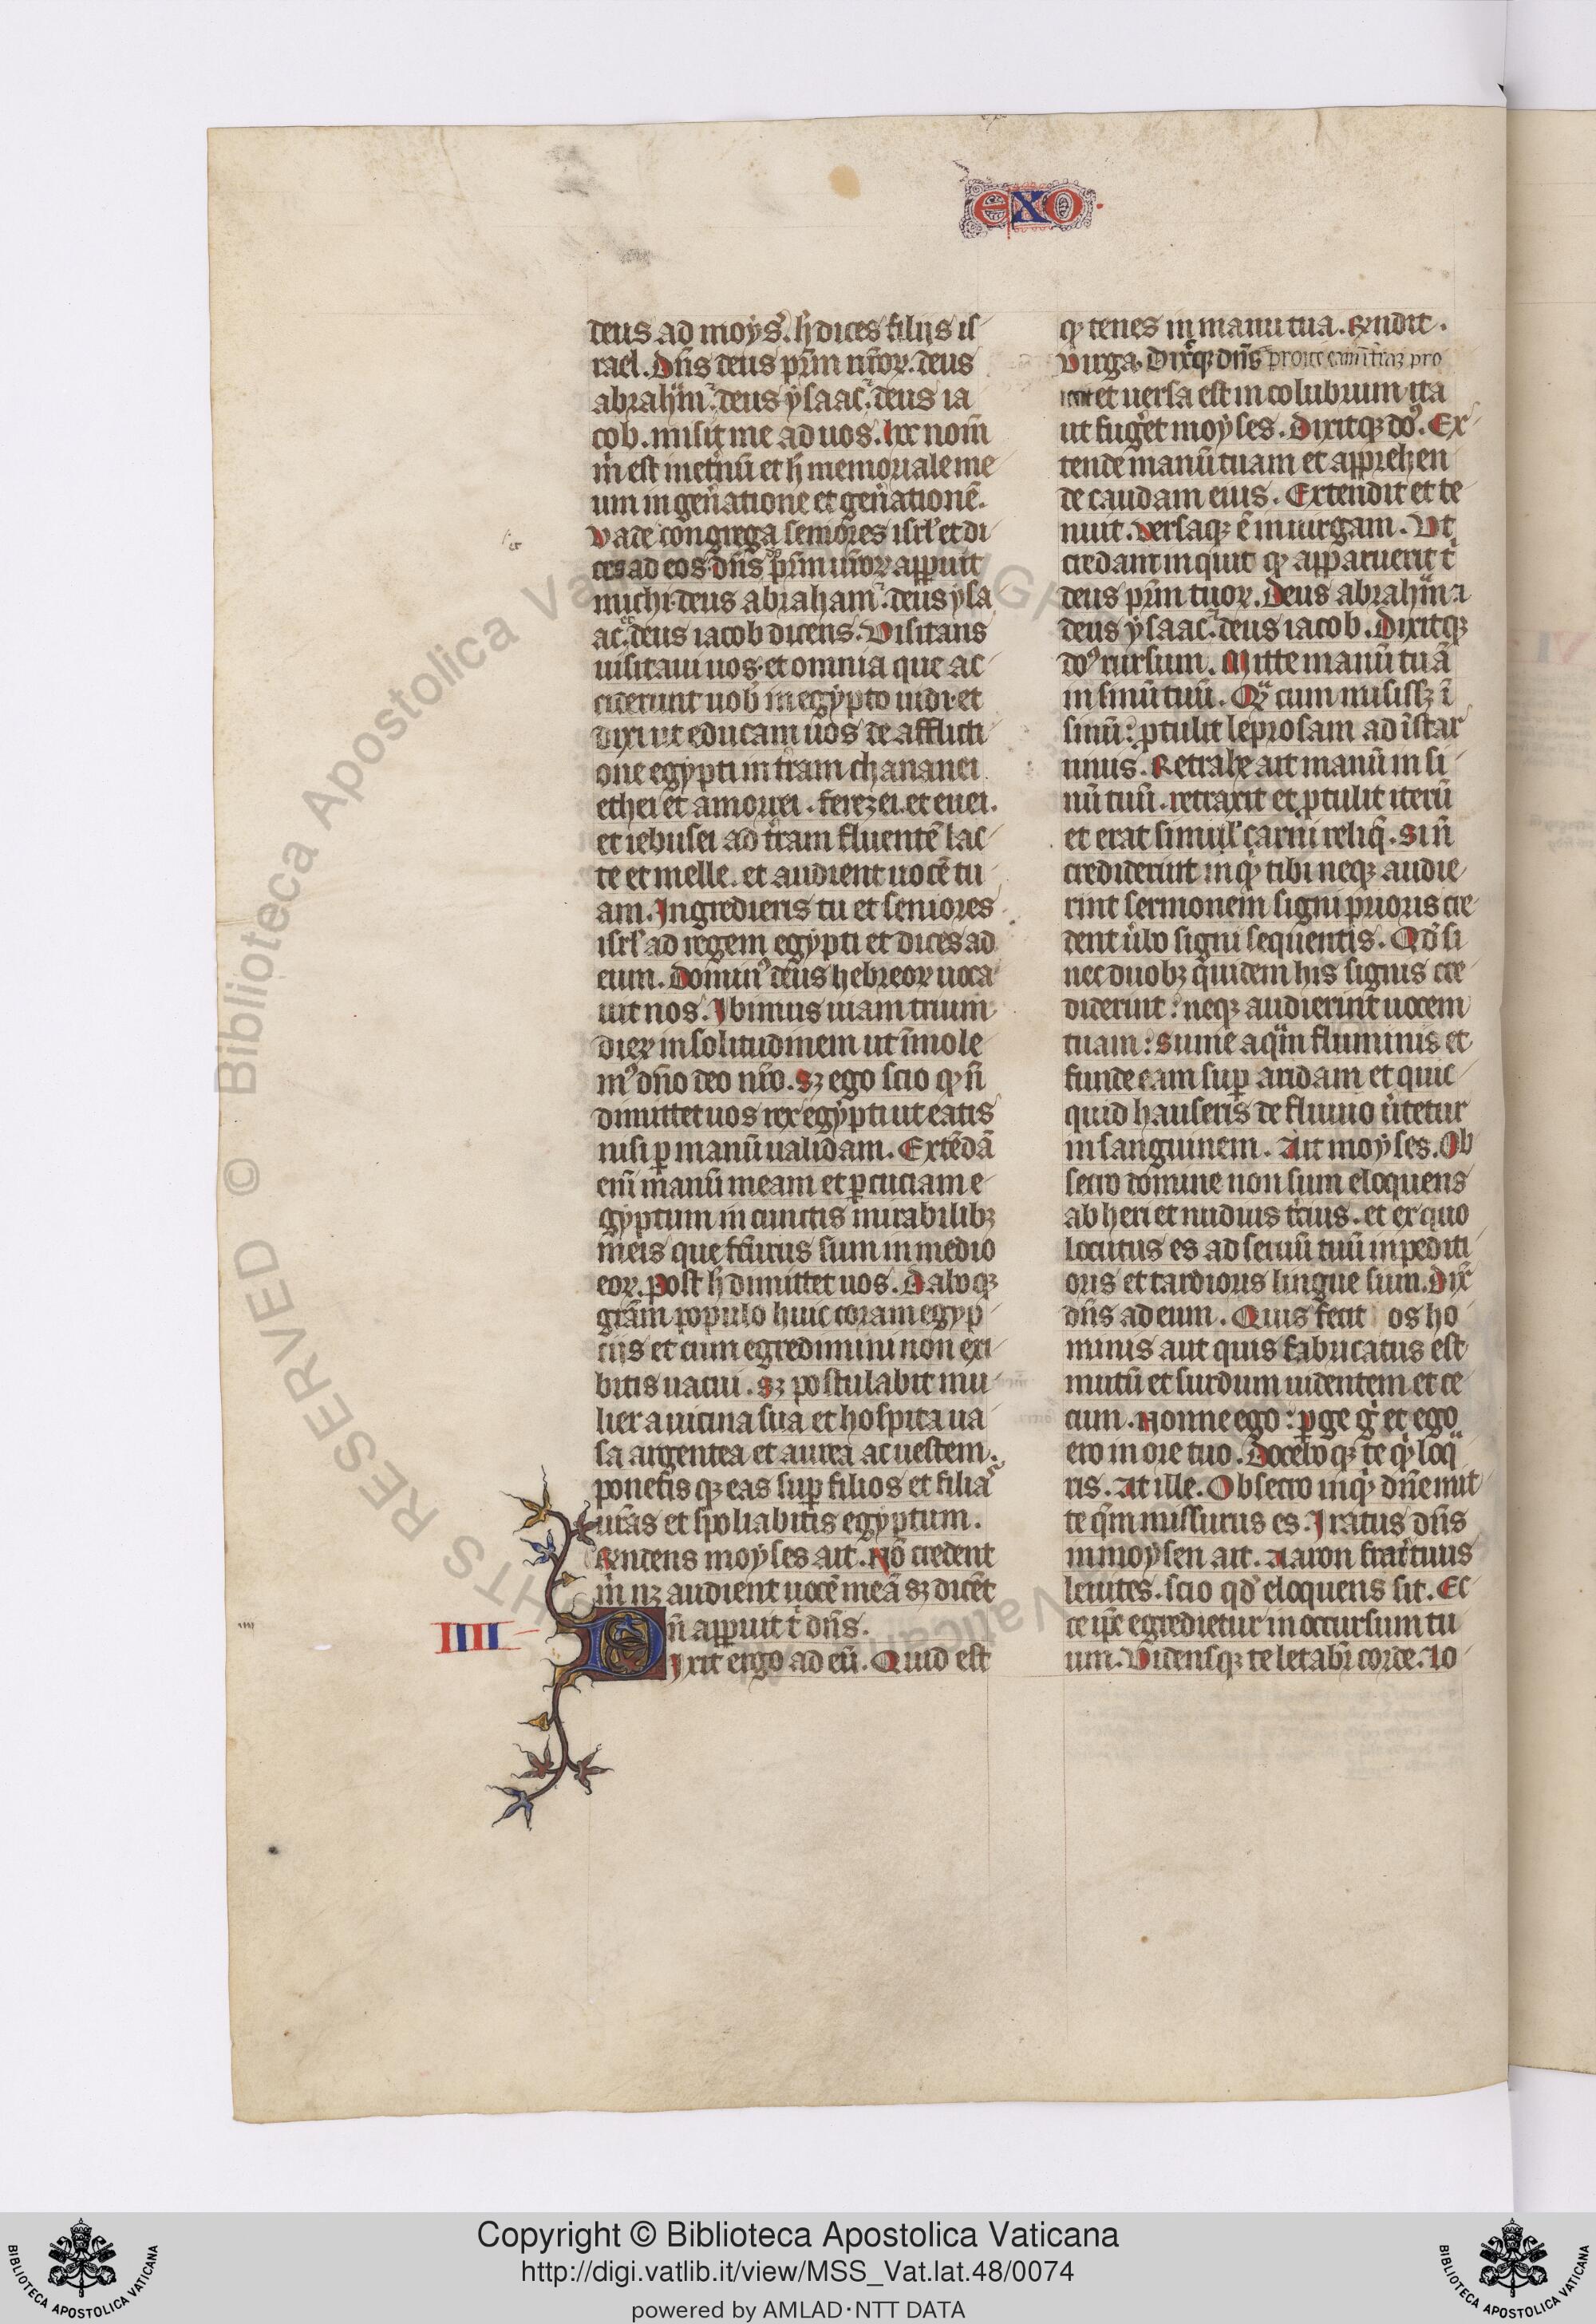 exo
deus ad moys̄. h̄ dices filijs iſ
rael. Dn̄s deus pr̄m nr̄oꝝ. deus
abrah̄m. deus ysaac. deus ia
cob. misit me ad uos. hoc nom̄
m̄ est inet̄nū et h̄ memoriale me
um in gen̄atione et gen̄ationē.
Vade congrega seniores isrl' et di
ces ad eos dn̄s pr̄m ur̄oꝝ apparuit
michi. deus abraham. deus ysa
ac. deus iacob dicens. Visitans
uisitaui uos. et omnia que ac
ciderunt uob̄ in egypto uidi. et
dixi ut educam uos de afflicti
one egypti in tr̄am chananei
ethei et amorrei. ferezei. et euei.
et iebusei ad tr̄am fluentē lac
te et melle. et audient uocē tu
am. Ingredieris tu et seniores
isrl' ad regem egypti et dices ad
eum. Domin⁹ deus hebreoꝝ uoca
uit nos. Ibimus uiam trium
dieꝝ in solitudinem ut īmole
m⁹ dn̄o deo nr̄o. Sꝫ ego scio qꝫ n̄
dimittet uos rex egypti ut eatis
nisi ꝑ manū ualidam. Extēdā
eni manū meam et ꝑcuciam e
gyptum in cunctis mirabilibꝫ
meis que fc̄urus sum in medio
eoꝝ. post h̄ dimittet uos. Daboqꝫ
grām populo huic coram egyp
ciis et cum egredimini non exi
bitis uacui. Sꝫ postulabit mu
lier a uicina sua et hospita ua
sa argentea et aurea ac uestem.
ponetisqꝫ eas suꝑ filios et filia
ur̄as et spoliabitis egyptum.
Rn̄dens moyses ait. Nō credent
m̄ nꝫ audient uocē meā sꝫ dicēt
n̄ apparuit t̄ dn̄s.
IIII Dixit ergo ad eū. Quid est
qꝫ tenes in manu tua. Rn̄dit.
Virga. Dix̄qꝫ dn̄s proice eam in t̄raꝫ pro
iecit et uersa est in colubrum ita
ut fuget moyses. Dixitqꝫ do⁹. Ex
tende manū tuam et apprehen
de caudam eius. Extendit et te
nuit. Versaqꝫ ē in uirgam. Vt
credant inquit qꝫ apparuerit t̄
deus pr̄m tuoꝝ. Deus abrah̄m
deus ysaac. deus iacob. Dixitqꝫ
do⁹ rursum. Mitte manū tuā
in sinū tuū. Quā cum misissꝫ ī
sinū: ꝓtulit leprosam ad īstar
niuis. Retrahe ait manū in si
nū tuū. retraxit et ꝓtulit iterū
et erat simil' carni reliq̄. Si n̄
crediderint inq̄ tibi neqꝫ audie
rint sermonem signi prioris cre
dent ūbo signi sequentis. Qd̄ si
nec duobꝫ quidem his signis cre
diderint: neqꝫ audierint uocem
tuam: Sume aq̄m fluminis et
funde eam suꝑ aridam et quic
quid hauseris de fluuio ūtetur
in sanguinem. Ait moyses. Ob
secro domine non sum eloquens
ab heri et nudius t̄cius. et ex quo
locutus es ad seruū tuū inpediti
oris et tardioris lingue sum. Dix̄
dn̄s ad eum. Quis fecit os ho
minis aut quis fabricatus est
mutū et surdum uidentem et ce
cum. Nonne ego: ꝑge g̊ et ego
ero in ore tuo. Doceboqꝫ te q̄ loq̄
ris. At ille. Obsecro inq̄ dn̄e mit
te q̄m missurus es. Iratus dn̄s
in moysen ait. Aaron frater tuus
leuites. scio qd̄ eloquens sit. Ec
ce ip̄e egredietur in occursum tu
um. Videnſqꝫ te letabr̄ corde. Lo
Copyright © Biblioteca Apostolica Vaticana
http://digi.vatlib.it/view/MSS_Vat.lat.48/0074
powered by AMLAD·NTT DATA
BIBLIOTECA APOSTOLICA VATICANA
BIBLIOTECA APOSTOLICA VATICANA